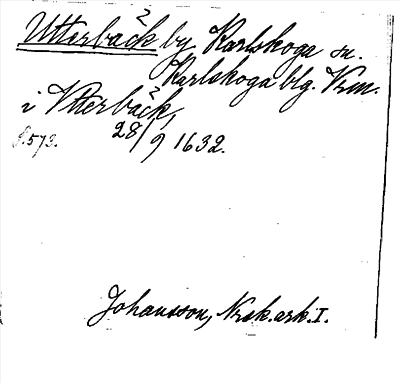 Utterbäck by Karlskoga sn.
Karlskoga blg. Vrm.
i Ytterbäck,
s. 573. 28/9 1632.
Johansson, Nrsk. ark. I.